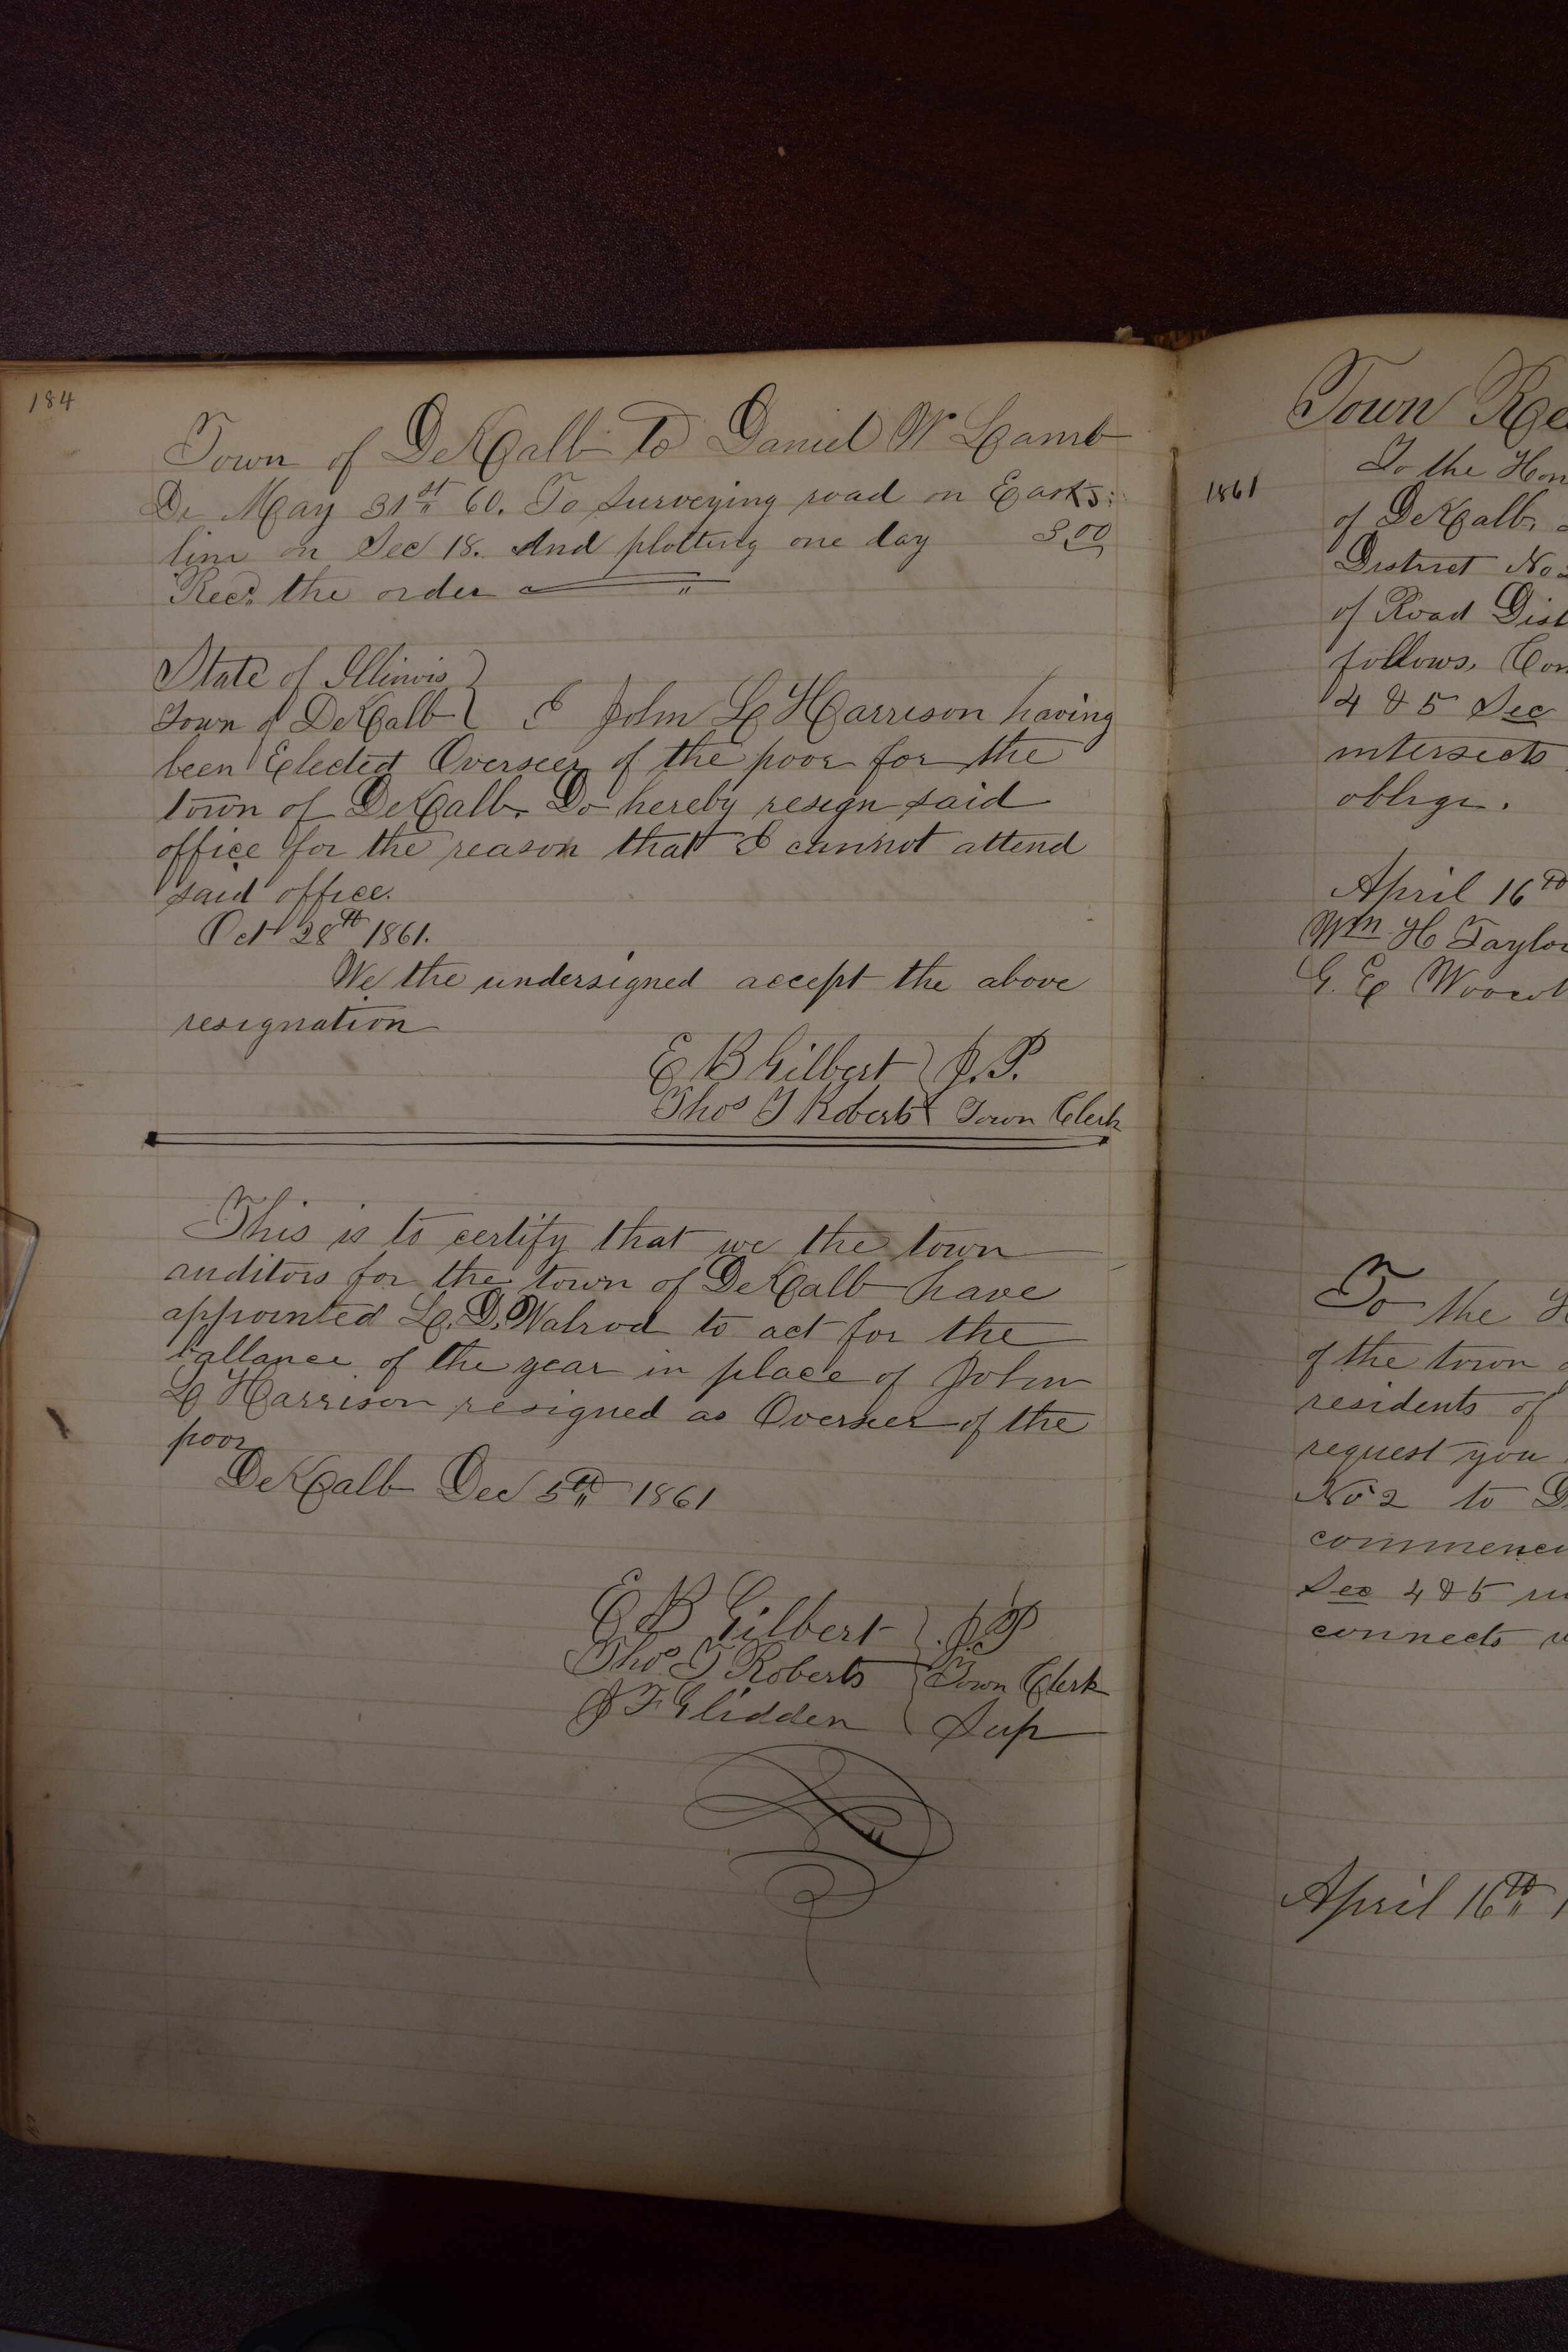 184
Town of DeKalb To Daniel W Lamb
Dr May 31st 60. To Surveying road on East
line on Sec 18. And plotting one day 3,00
Recd. the order
State of Illinois
Town of DeKalb } I John L Harrison having
been Elected Overseer of the poor for the
town of DeKalb. Do hereby resign said
office for the reason that I cannot attend
said office.
Oct 28th 1861.
We the undersigned accept the above
resignation
E B Gilbert } J.P.
Thos T Roberts } Town Clerk
This is to certify that we the town
auditors for the town of DeKalb have
appointed L. D. Walrod to act for the
ballance of the year in place of John
L Harrison resigned as Overseer of the
poor
DeKalb Dec 5th 1861
E B Gilbert } J.P
Thos T Roberts } Town Clerk
J F Glidden } Sup
Town Rec
1861
To the Hon
of DeKalb,
District No
of Road Dist
follows, Com
4 & 5 Sec
intersects
oblige.
April 16th
Wm H Taylor
G. E Woo
To the
of the town
residents of
request you
No 2 to D
commenci
Sec 4 & 5
connects
April 16th 1